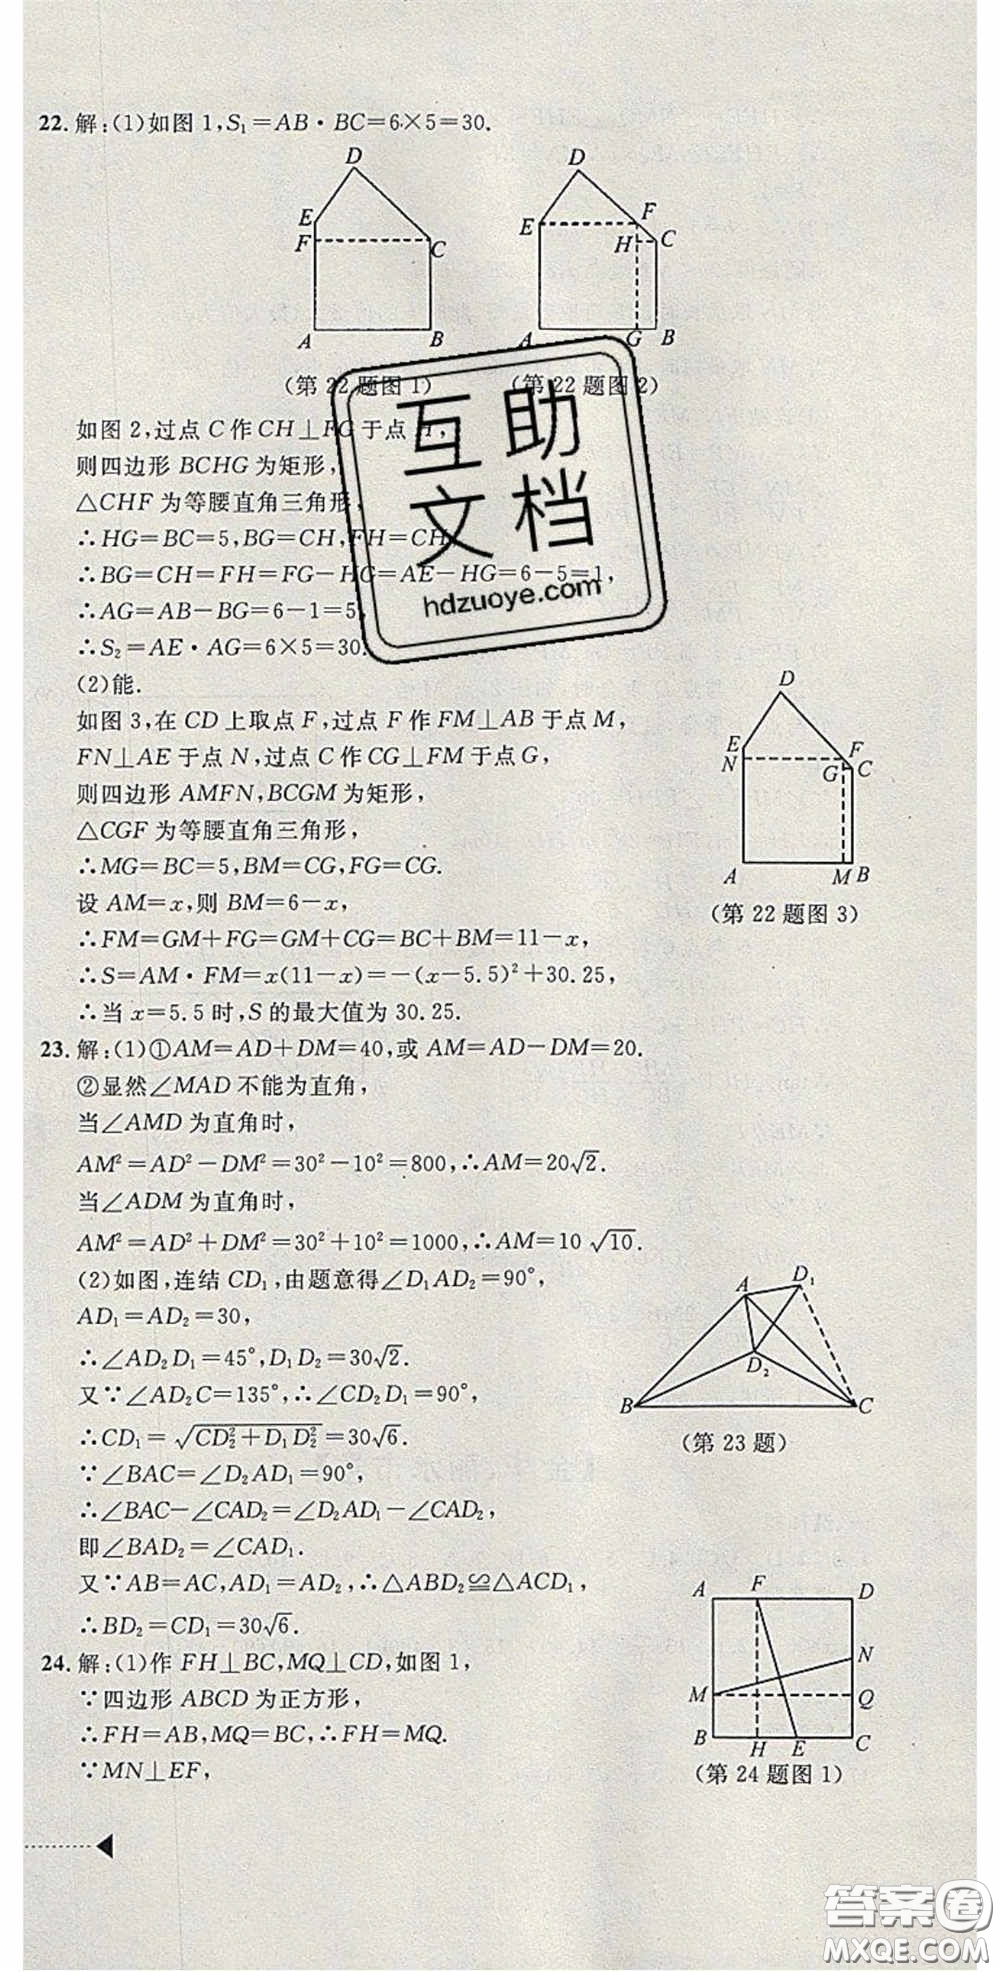 22. 解:(1)如图 1,S₁=AB·BC=6×5=30.
D
E
F
C
A
B
(第 22 题图 1)
D
E
F
H
C
A
G
B
(第 22 题图 2)
如图 2,过点 C 作 CH⊥FG 于点 H,
则四边形 BCHG 为矩形,
△CHF 为等腰直角三角形,
∴HG=BC=5,BG=CH,FH=CH,
∴BG=CH=FH=FG-HG=AE-HG=6-5=1,
∴AG=AB-BG=6-1=5,
∴S₂=AE·AG=6×5=30.
(2)能.
如图 3,在 CD 上取点 F,过点 F 作 FM⊥AB 于点 M,
FN⊥AE 于点 N,过点 C 作 CG⊥FM 于点 G,
则四边形 AMFN,BCGM 为矩形,
△CGF 为等腰直角三角形,
∴MG=BC=5,BM=CG,FG=CG.
设 AM=x,则 BM=6-x,
∴FM=GM+FG=GM+CG=BC+BM=11-x,
∴S=AM·FM=x(11-x)=-(x-5.5)²+30.25,
∴当 x=5.5 时,S 的最大值为 30.25.
D
E
N
F
G
C
A
M
B
(第 22 题图 3)
23. 解:(1)①AM=AD+DM=40,或 AM=AD-DM=20.
②显然∠MAD 不能为直角,
当∠AMD 为直角时,
AM²=AD²-DM²=30²-10²=800,∴AM=20√2.
当∠ADM 为直角时,
AM²=AD²+DM²=30²+10²=1000,∴AM=10√10.
(2)如图,连结 CD₁,由题意得∠D₁AD₂=90°,
AD₁=AD₂=30,
∴∠AD₂D₁=45°,D₁D₂=30√2.
又∵∠AD₂C=135°,∴∠CD₂D₁=90°,
∴CD₁=√(CD₂²+D₁D₂²)=30√6.
∵∠BAC=∠D₂AD₁=90°,
∴∠BAC-∠CAD₂=∠D₂AD₁-∠CAD₂,
即∠BAD₂=∠CAD₁.
又∵AB=AC,AD₁=AD₂,∴△ABD₂≌△ACD₁,
∴BD₂=CD₁=30√6.
A
D₁
D₂
B
C
(第 23 题)
24. 解:(1)作 FH⊥BC,MQ⊥CD,如图 1,
∵四边形 ABCD 为正方形,
∴FH=AB,MQ=BC,∴FH=MQ.
∵MN⊥EF,
A
F
D
N
M
Q
B
H
E
C
(第 24 题图 1)
互助
文档
hdzuoye.com
答案圈
MXQE.COM